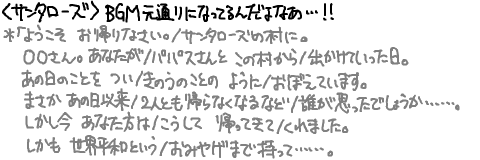 〈サンタローズ〉BGM元通りになってるんだよなあ…!!
*「ようこそ お帰りなさい。/サンタローズの村に。
○○さん。あなたが/パパスさんと この村から/出かけていった日。
あの日のことを つい/きのうのことの ように/おぼえています。
まさか あの日以来/2人とも帰らなくなるなど/誰が思ったでしょうか……。
しかし今 あなた方は/こうして 帰ってきて/くれました。
しかも 世界平和という/おみやげまで持って……。